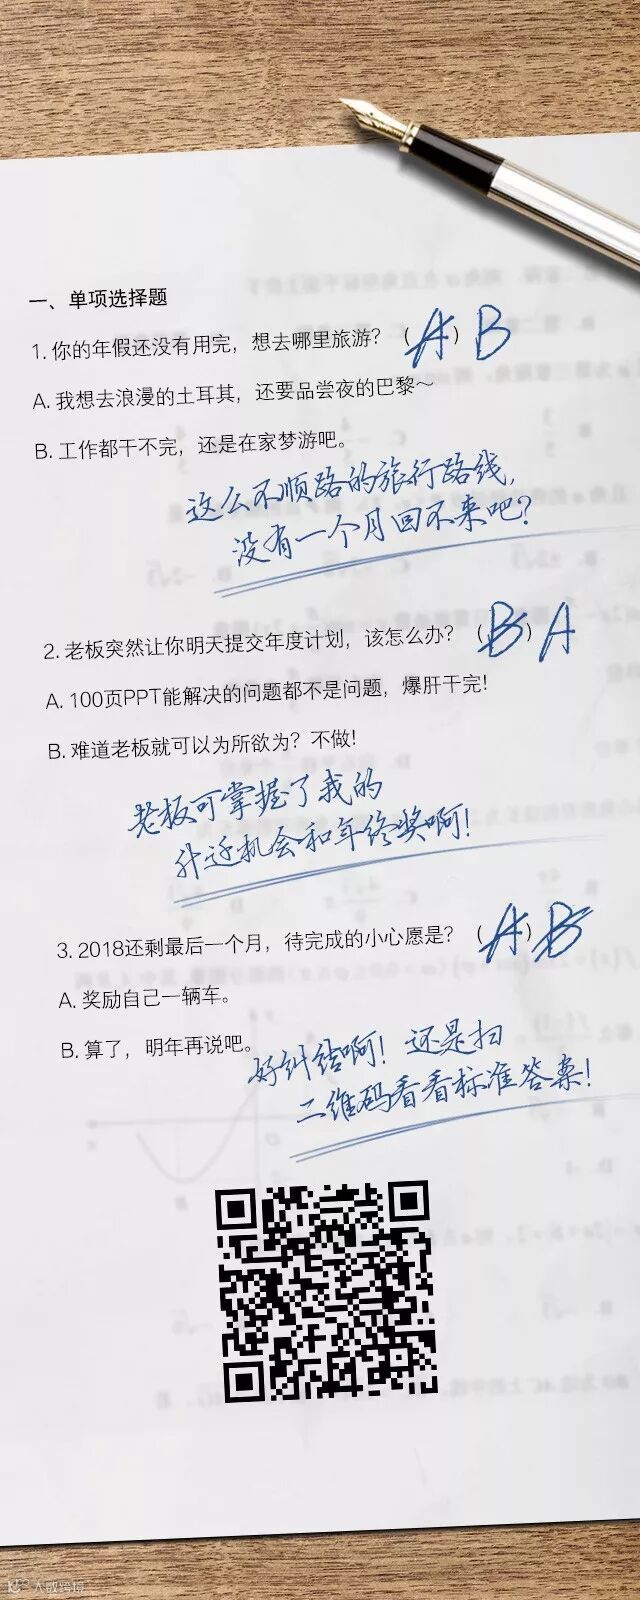 一、单项选择题
1. 你的年假还没有用完，想去哪里旅游？（A）B
A. 我想去浪漫的土耳其，还要品尝夜的巴黎～
B. 工作都干不完，还是在家梦游吧。
这么不顺路的旅行路线，
没有一个月回不来吧？
2. 老板突然让你明天提交年度计划，该怎么办？（B）A
A. 100页PPT能解决的问题都不是问题，爆肝干完！
B. 难道老板就可以为所欲为？不做！
老板可掌握了我的
升迁机会和年终奖啊！
3. 2018还剩最后一个月，待完成的小心愿是？（A）B
A. 奖励自己一辆车。
B. 算了，明年再说吧。
好纠结啊！还是扫
二维码看看标准答案！
大数跨境